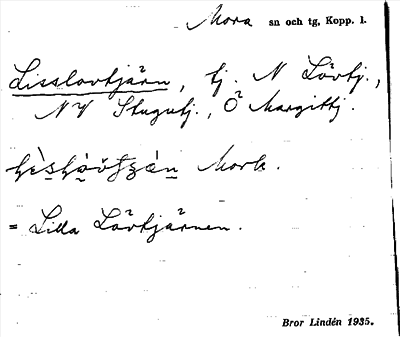 Mora sn och tg, Kopp. l.
Lisslovtjärn, tj. N Lövtj.,
NV Stugutj., Ö Margittj.
Mork.
= Lilla Lövtjärnen.
Bror Lindén 1935.